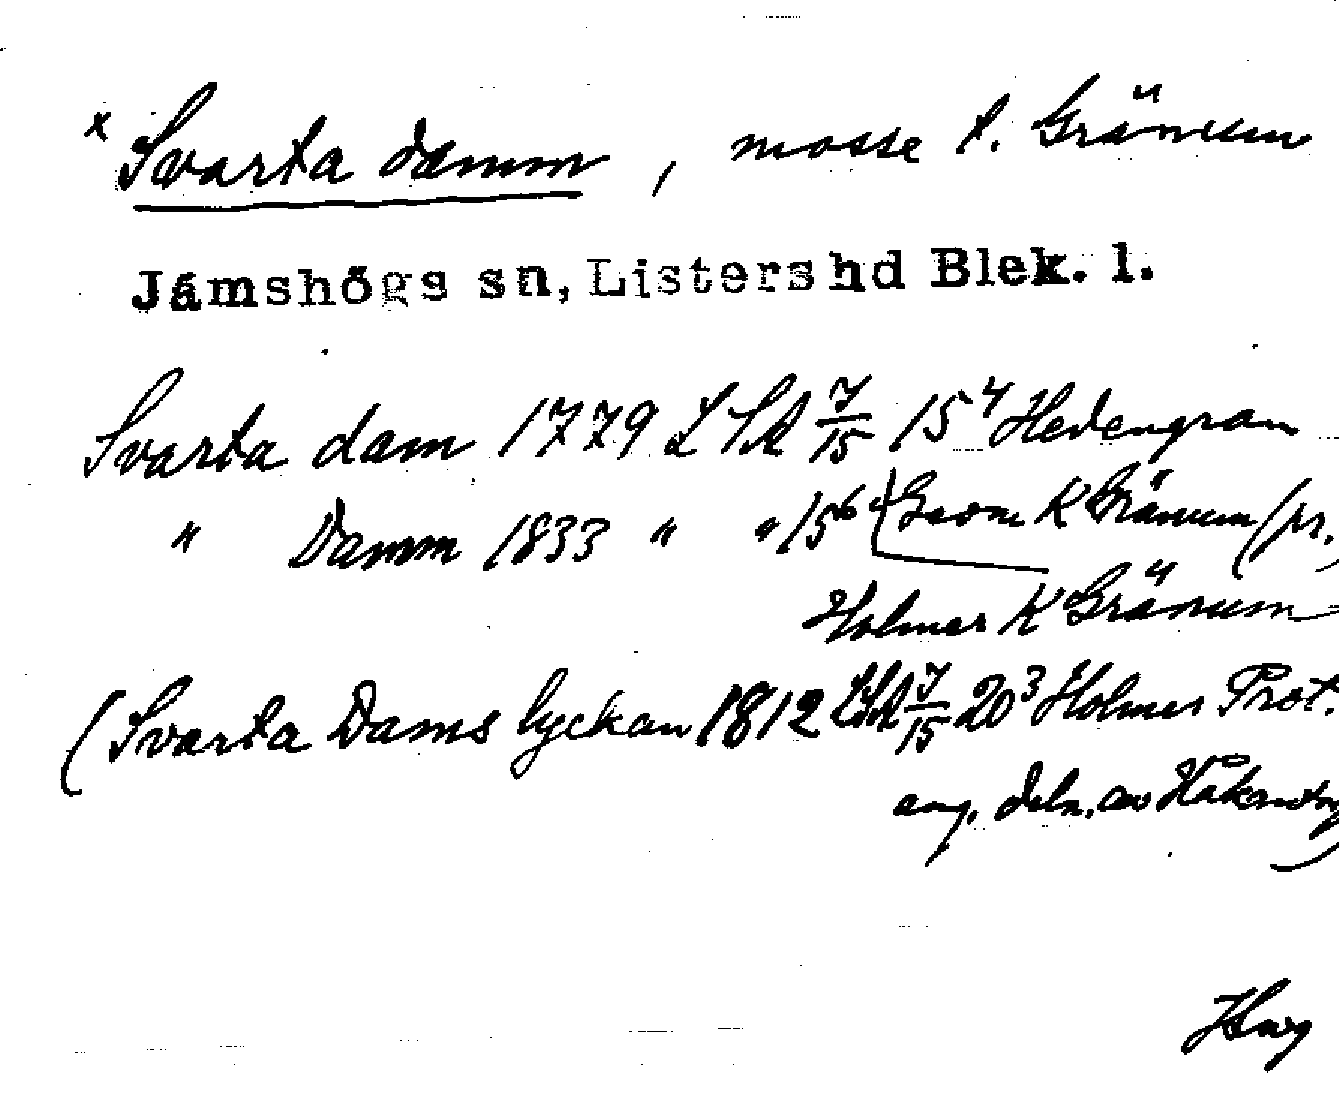 x Svarta damm, mosse t. Gränum
Jämshögs sn, Listers hd Blek. l.
Svarta dam 1779 LSA 7/15 15⁴ Hedengran
" Damm 1833 " " 15⁶ (Geom K Gränum (pr.
Holmer K Gränum
(Svarta Dams lyckan 1812 LSA 7/15 20³ Holmer Prot.
ang. deln. av